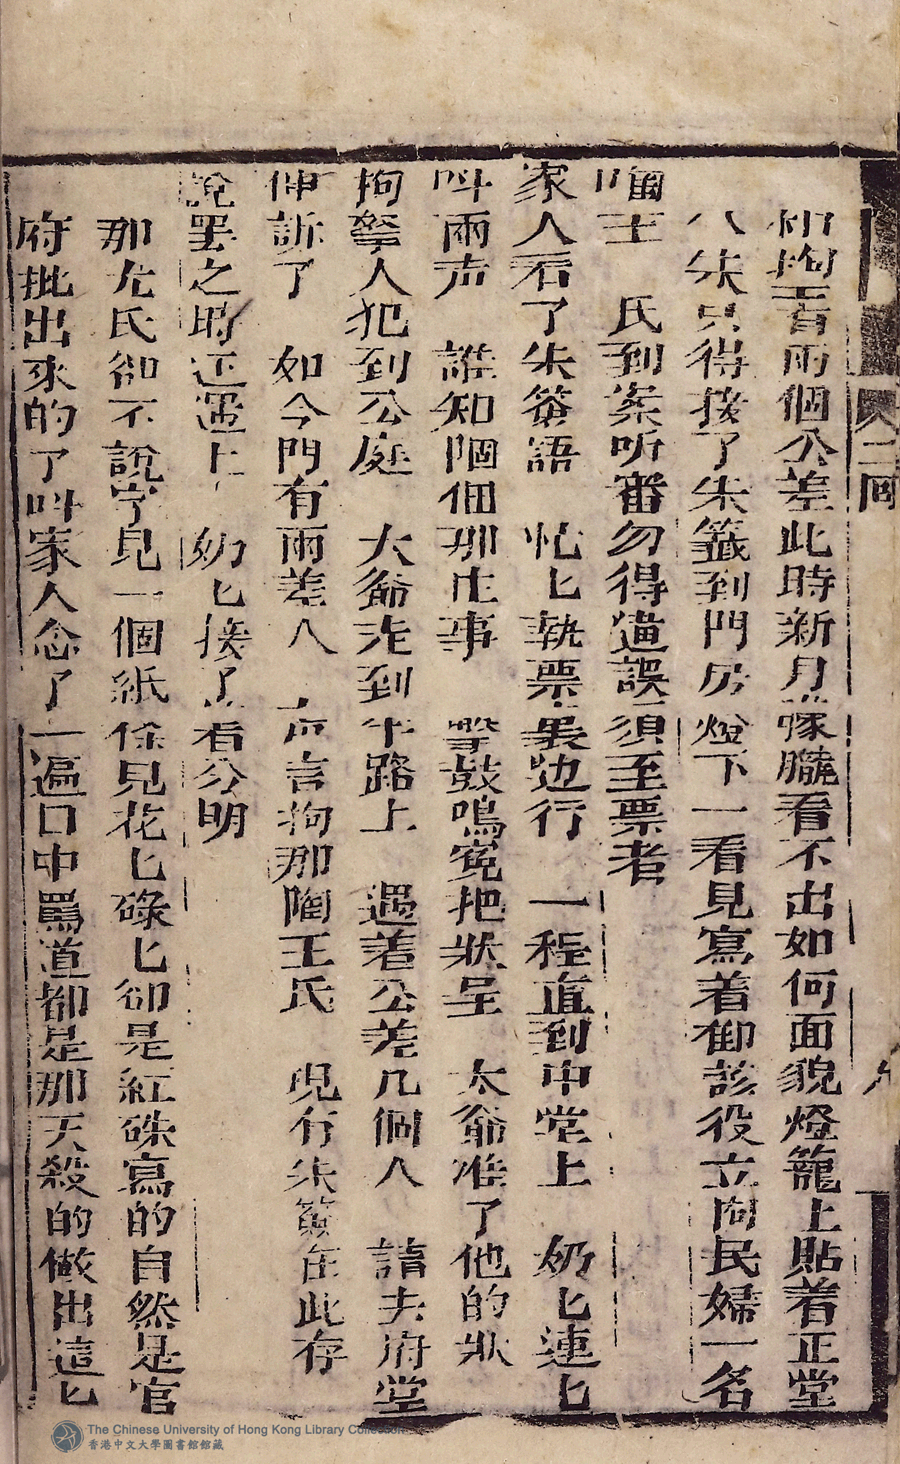 和拘王看兩個公差此時新月朦朧看不出如何面貌燈籠上貼着正堂
八朱只得接了朱籤到門房燈下一看見寫着御該役立向民婦一名
陶王 氏到案听審勿得違誤須至票者
家人看了朱簽語 忙匕執票裏边行 一程直到中堂上 奶匕連匕
呌兩声 誰知陶佃那庄事 擊鼓鳴寃把狀呈 太爺准了他的狀
拘拏人犯到公庭 大爺走到半路上 遇着公差几個人 請去府堂
伸訴了 如今門有兩差人 声言拘那陶王氏 現有朱簽在此存
說罢之時正遇上 奶匕接了看分明
那尤氏卻不說字見一個紙條見花匕碌匕卻是紅硃寫的自然是官
府批出來的了呌家人念了一遍口中罵道都是那天殺的做出這匕
二回
The Chinese University of Hong Kong Library Collection
香港中文大學圖書館館藏